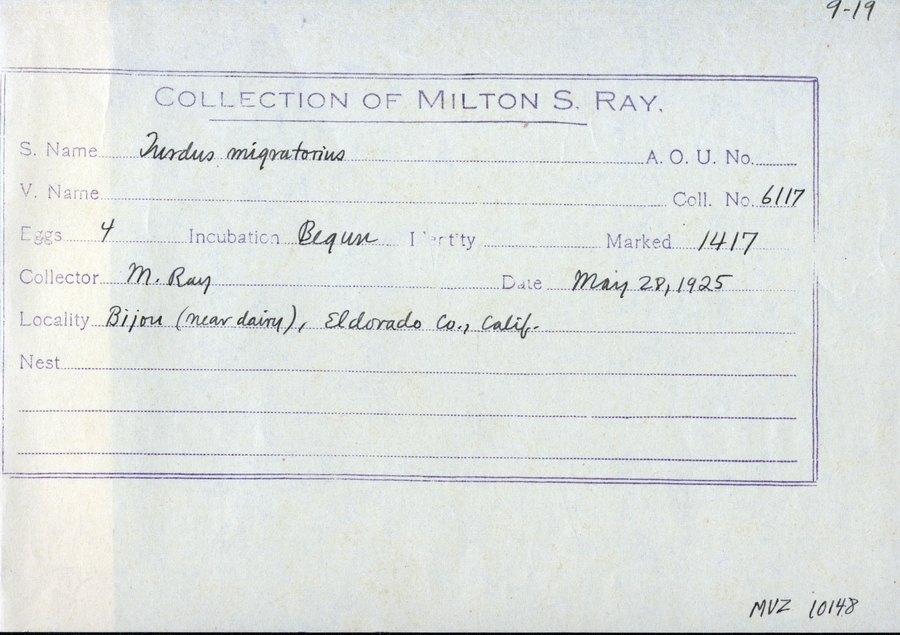 9-19
COLLECTION OF MILTON S. RAY.
S. Name Turdus migratorius A. O. U. No.
V. Name Coll. No. 6117
Eggs 4 Incubation Begun Identity Marked 1417
Collector M. Ray Date May 28, 1925
Locality Bijou (near dairy), Eldorado Co., Calif.
Nest
MVZ 10148